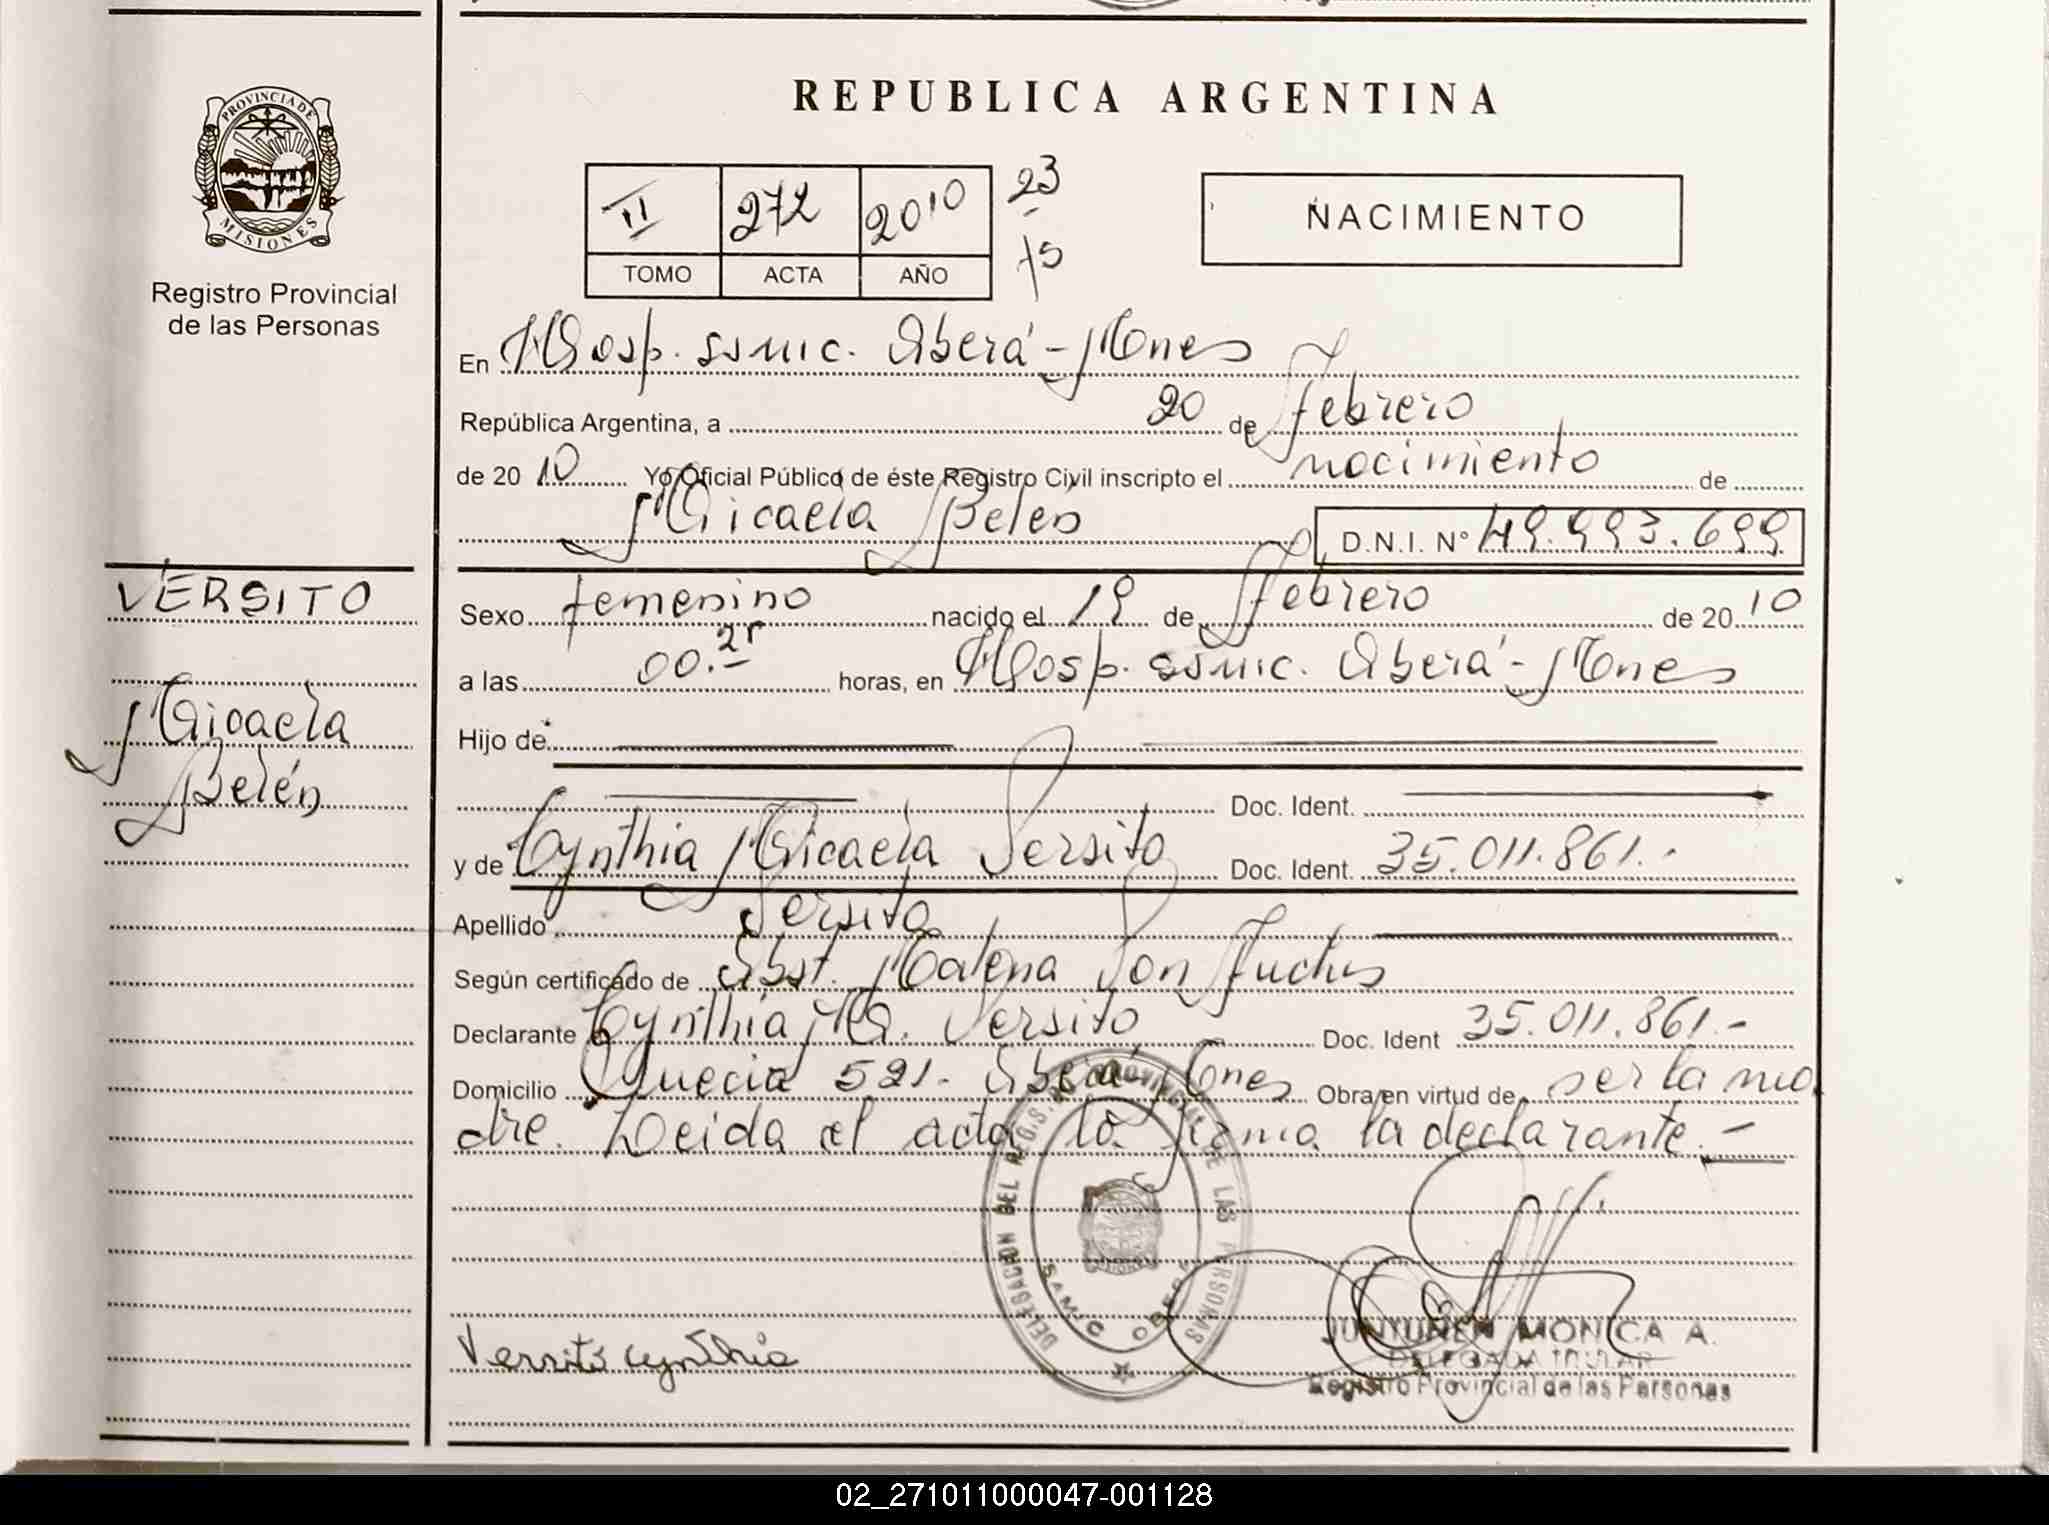 REPUBLICA ARGENTINA
PROVINCIA DE MISIONES
Registro Provincial
de las Personas
II 272 2010 23
TOMO ACTA AÑO 75
NACIMIENTO
En Hosp. ssmic. Oberá - Mnes
República Argentina, a 20 de Febrero
de 2010 Yo Oficial Público de éste Registro Civil inscripto el nacimiento de
Micaela Belén D.N.I. Nº 49.993.699
VERSITO
Micaela
Belén
Sexo femenino nacido el 19 de Febrero de 2010
a las 00.25 horas, en Hosp. ssmic. Oberá - Mnes
Hijo de
Doc. Ident.
y de Cynthia Micaela Versito Doc. Ident. 35.011.861.-
Apellido Versito
Según certificado de Obst. Malena Von Fuchs
Declarante Cynthia Ma. Versito Doc. Ident 35.011.861.-
Domicilio Suecia 521. Oberá Mnes Obra en virtud de ser la ma
dre. Leida el acta la firma la declarante.-
DELEGACION DEL REG. PROVINCIAL DE LAS PERSONAS
SAMIC OBERA
Versito Cynthia
JUNTUNEN MONICA A.
DELEGADA TITULAR
Registro Provincial de las Personas
02_271011000047-001128